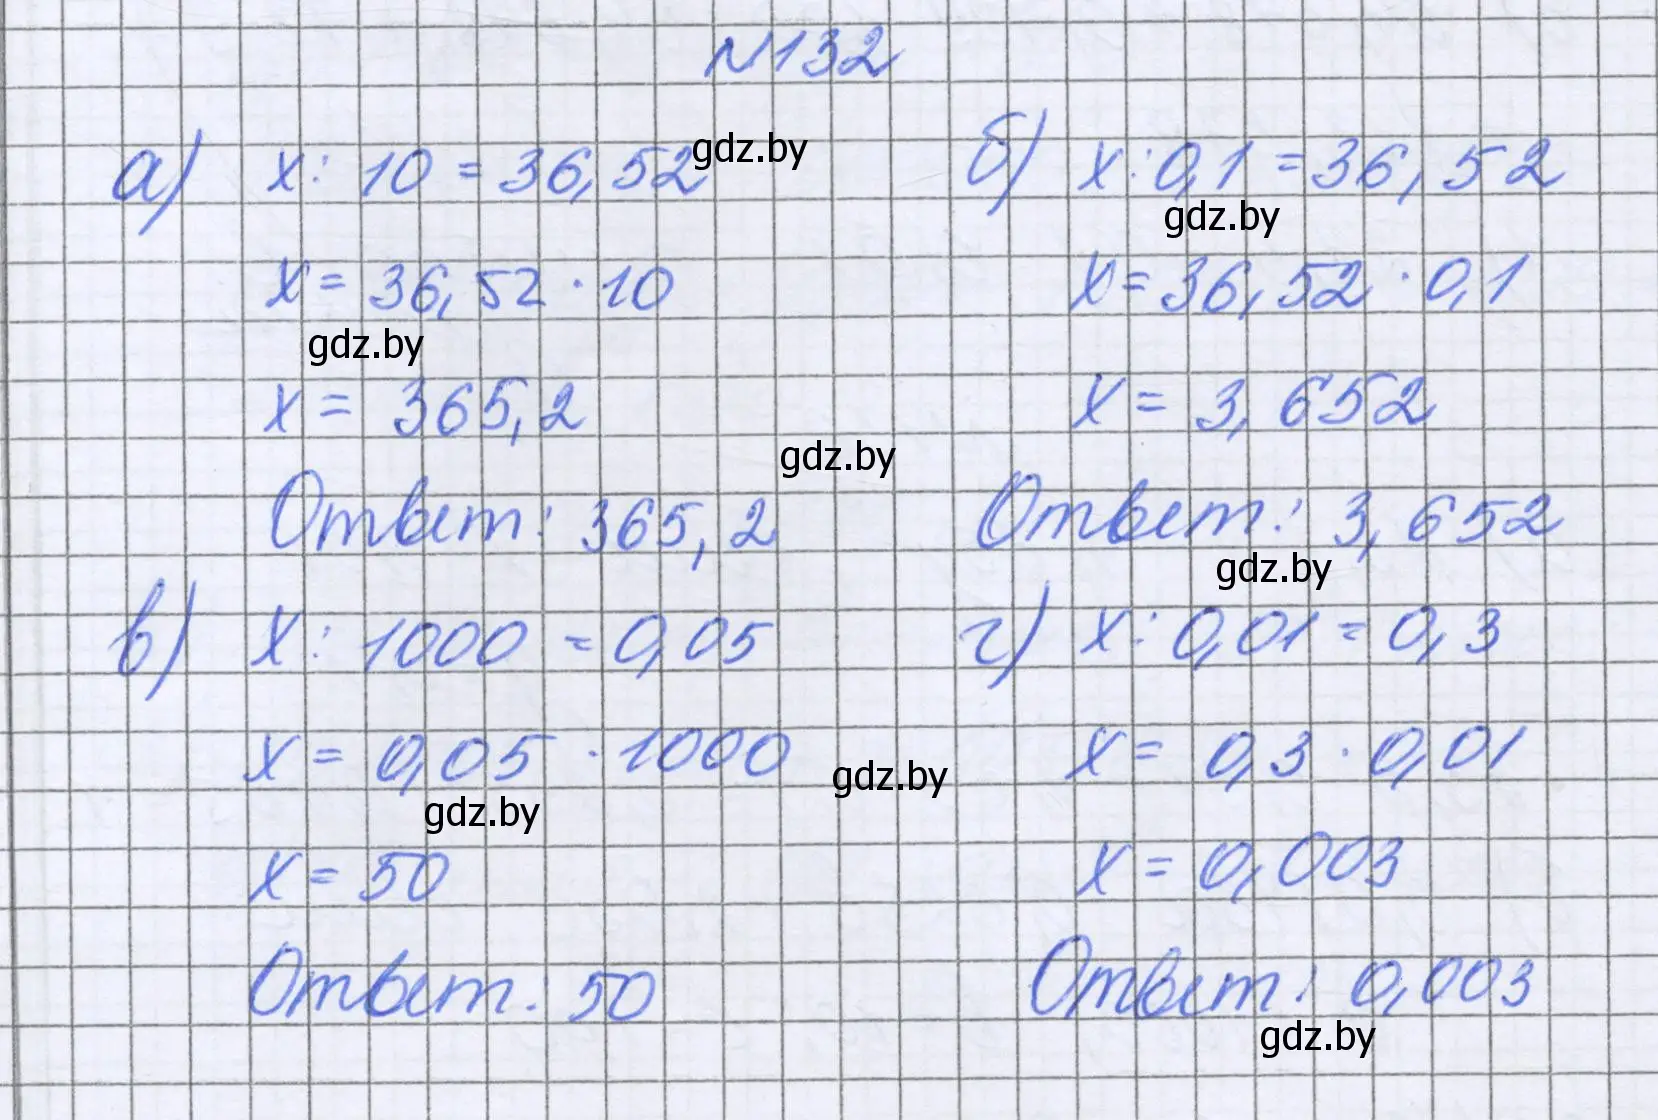 N132
а) x : 10 = 36,52
gdz.by
x = 36,52 · 10
gdz.by
x = 365,2
gdz.by
Ответ: 365,2
б) x : 0,1 = 36,52
gdz.by
x = 36,52 · 0,1
x = 3,652
Ответ: 3,652
gdz.by
в) x : 1000 = 0,05
x = 0,05 · 1000
gdz.by
gdz.by
x = 50
Ответ: 50
г) x : 0,01 = 0,3
x = 0,3 · 0,01
x = 0,003
Ответ: 0,003
gdz.by